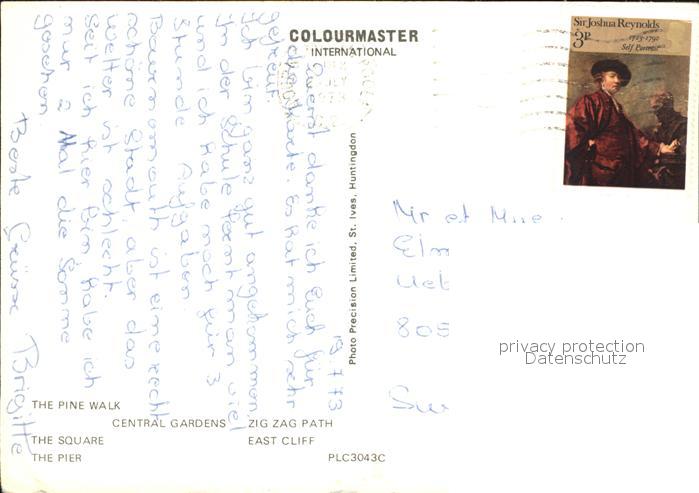 COLOURMASTER
INTERNATIONAL
Sir Joshua Reynolds
3P
1723-1792
Self Portrait
Photo Precision Limited, St. Ives, Huntingdon
19.7.73
Zuerst danke ich Euch für
die Karte. Es hat mich sehr
gefreut.
Ich bin ganz gut angekommen.
In der Schule lernt man viel
und ich habe noch für 3
Stunde Aufgaben.
Bournemouth ist eine recht
schöne Stadt, aber das
Wetter ist schlecht.
Seit ich hier bin habe ich
nur 2 Mal die Sonne
gesehen.
Beste Grüsse Brigitte
Mr et Mme
805
privacy protection
Datenschutz
THE PINE WALK
CENTRAL GARDENS ZIG ZAG PATH
THE SQUARE EAST CLIFF
THE PIER PLC3043C